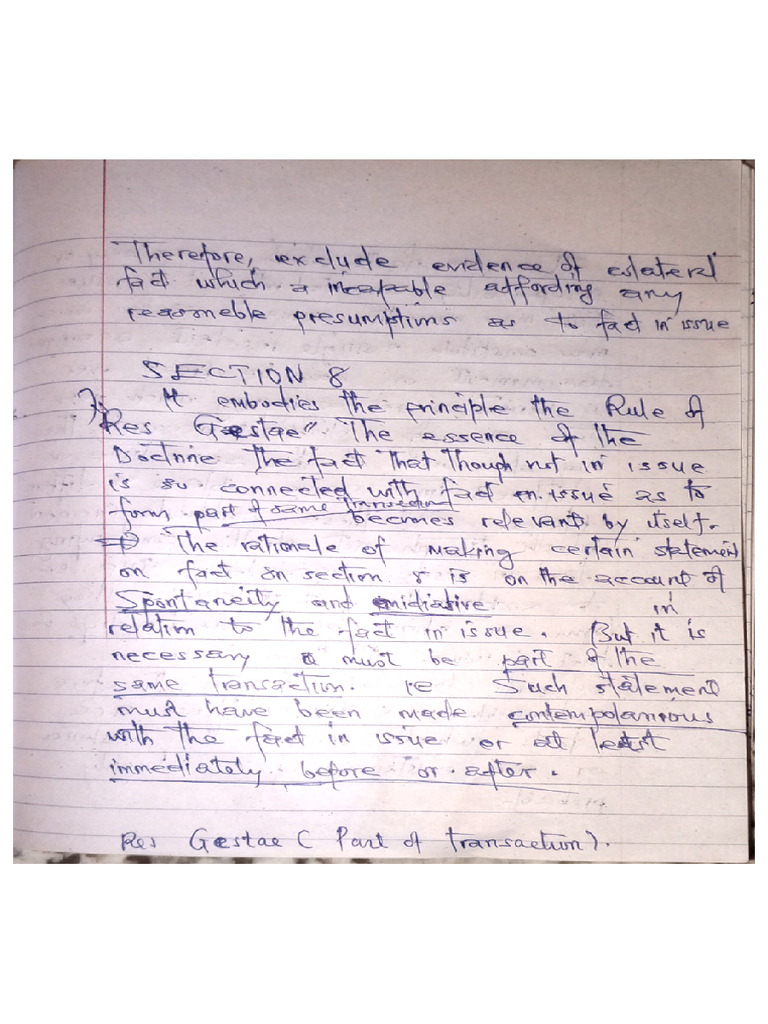 Therefore, exclude evidence of colateral
fact which is incapable affording any
reasoneble presumptions as to fact in issue
SECTION 8
It embodies the principle the Rule of
Res Gestae". The essence of the
Doctrine The fact That Though not in issue
is so connected with fact in issue as to
form part of same transaction becomes relevant by itself.
The rationale of making certain statement
on fact on section 8 is on the account of
Spontaneity and in
relation to the fact in issue. But it is
necessary must be part of the
same transaction. ie Such statement
must have been made contempolanious
with the fact in issue or at least
immediately before or after.
Res Gestae ( Part of transaction).